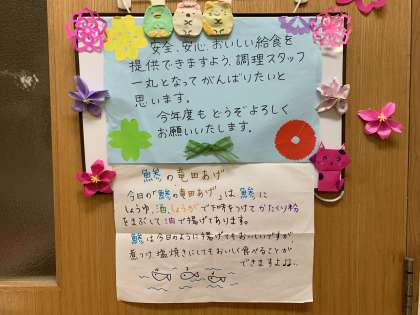 安全、安心、おいしい給食を
提供できますよう、調理スタッフ
一丸となってがんばりたいと
思います。
今年度もどうぞよろしく
お願いいたします。
鯵の竜田あげ
今日の「鯵の竜田あげ」は、鯵に
しょうゆ、酒、しょうがで下味をつけてかたくり粉
をまぶして油で揚げてあります。
鯵は今日のように揚げてもおいしいですが
煮つけ、塩焼きにしてもおいしく食べることが
できますよ♫